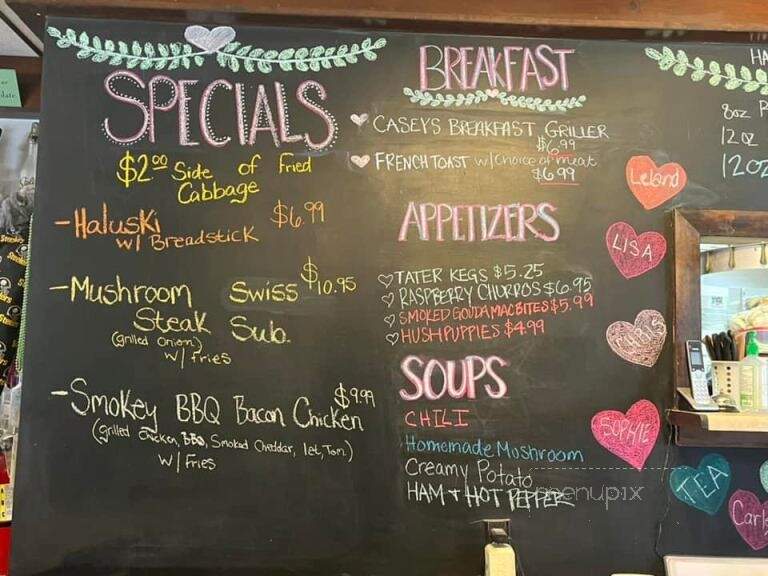 SPECIALS
$2.00 Side of Fried
Cabbage
- Haluski $6.99
w/ Breadstick
- Mushroom Swiss $10.95
Steak Sub.
(grilled onion)
w/ fries
- Smokey BBQ Bacon Chicken $9.99
(grilled chicken, BBQ, Smoked Cheddar, let, Tom)
w/ Fries
BREAKFAST
CASEY'S BREAKFAST GRILLER
$6.99
FRENCH TOAST w/ choice of meat
$6.99
APPETIZERS
TATER KEGS $5.25
RASPBERRY CHURROS $6.95
SMOKED GOUDA MAC BITES $5.99
HUSHPUPPIES $4.99
SOUPS
CHILI
Homemade Mushroom
Creamy Potato
HAM + HOT PEPPER
menupix
Leland
LISA
CHRIS
SOPHIE
TEA
Carl
HA
C
8oz
12oz
12oz